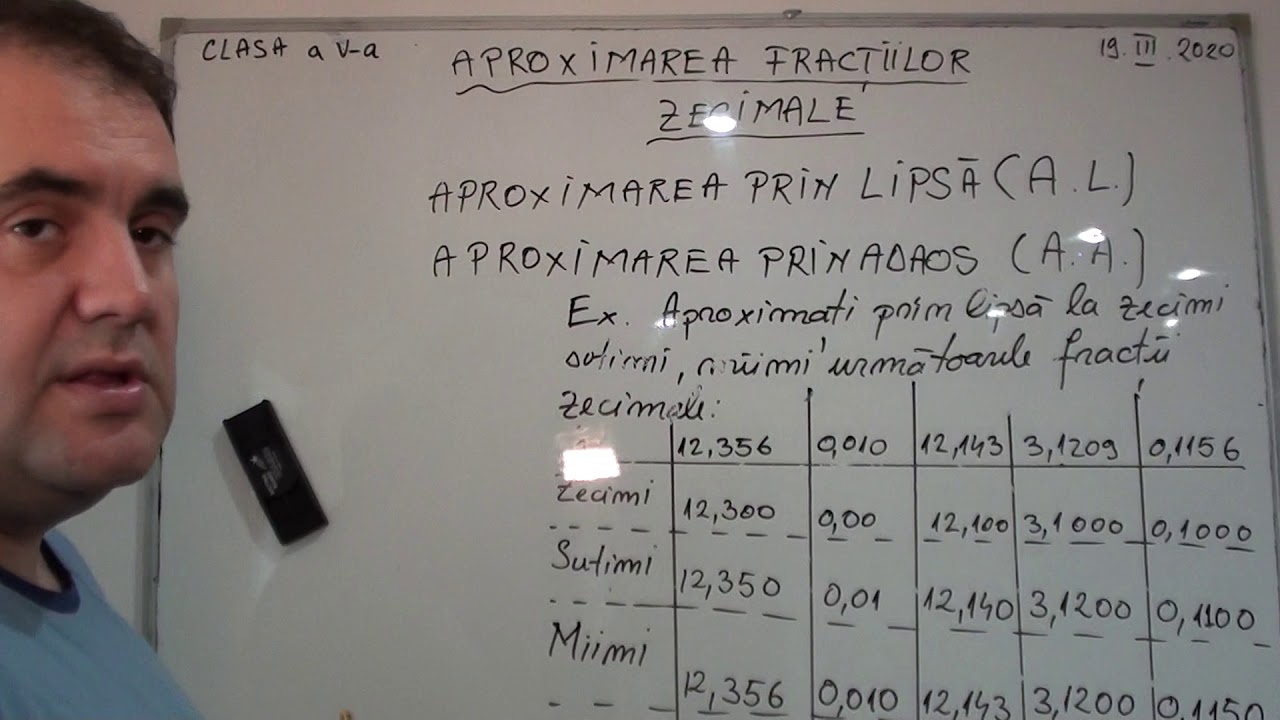 CLASA a V-a
19.III.2020
APROXIMAREA FRACȚIILOR
ZECIMALE
APROXIMAREA PRIN LIPSĂ (A.L.)
APROXIMAREA PRIN ADAOS (A.A.)
Ex. Aproximați prin lipsă la zecimi
sutimi, miimi următoarele fracții
zecimale:
12,356 0,010 12,143 3,1209 0,1156
Zecimi 12,300 0,00 12,100 3,1000 0,1000
Sutimi 12,350 0,01 12,140 3,1200 0,1100
Miimi 12,356 0,010 12,143 3,1200 0,1150